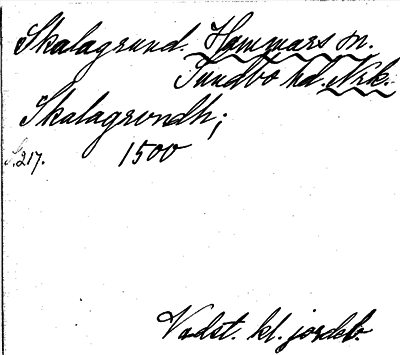 Skalagrund. Hammars sn.
Sundbo hd. Nrk.
Skalagrondh;
S.217. 1500
Vadst. kl. jordeb.